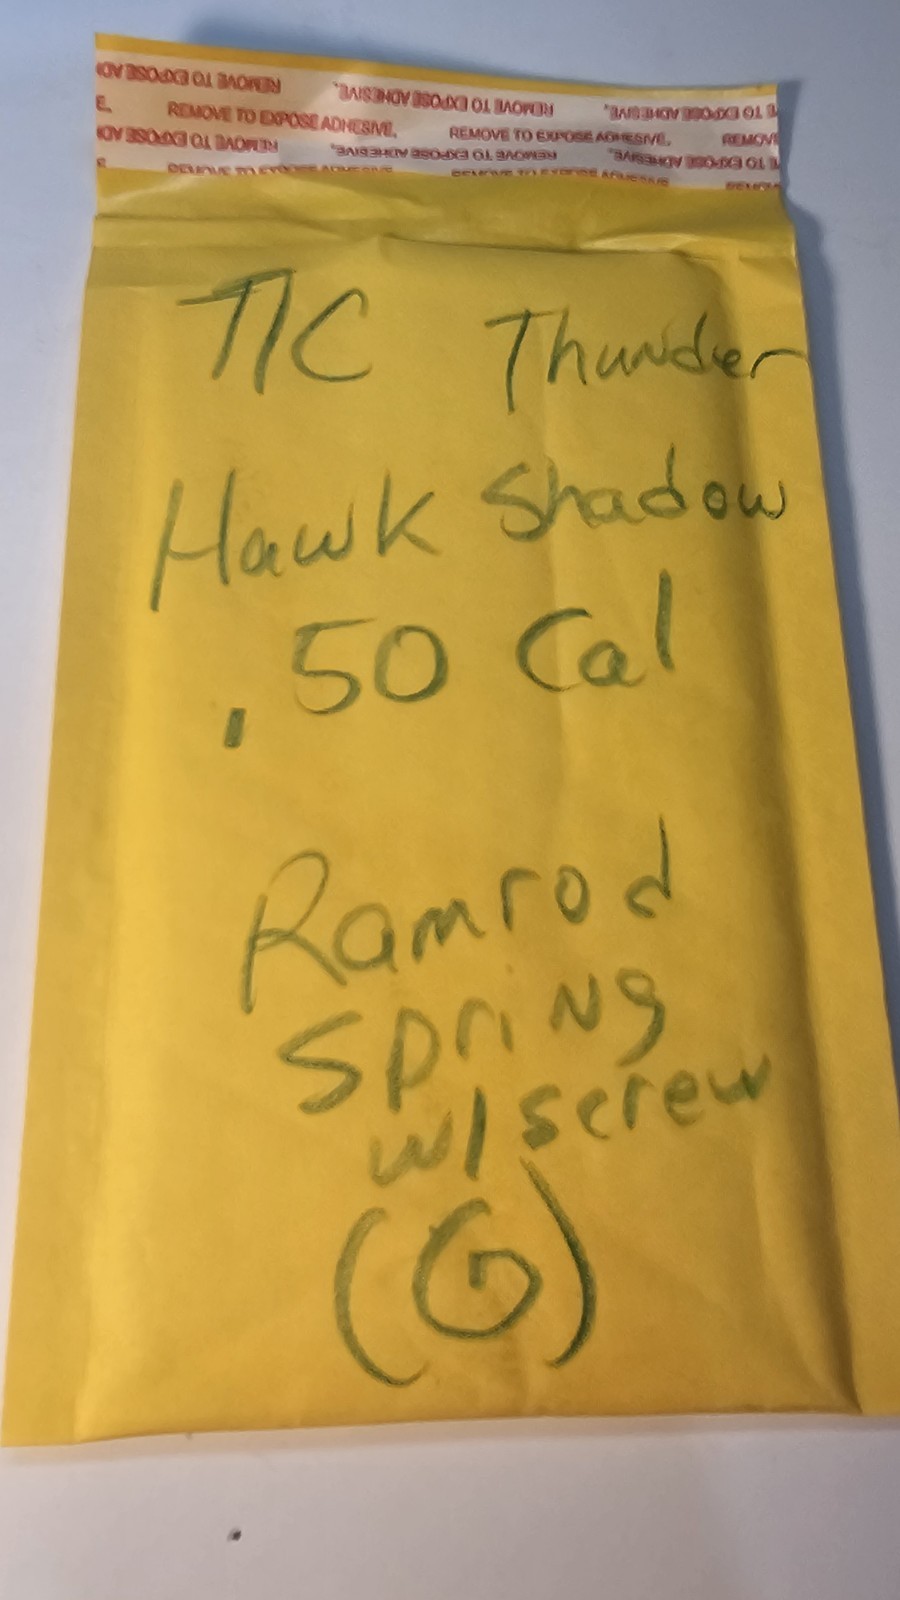 REMOVE TO EXPOSE ADHESIVE. REMOVE TO EXPOSE ADHESIVE.
REMOVE TO EXPOSE ADHESIVE. REMOVE TO EXPOSE ADHESIVE. REMOVE
REMOVE TO EXPOSE ADHESIVE. REMOVE TO EXPOSE ADHESIVE.
T/C Thunder
Hawk Shadow
.50 Cal
Ramrod
Spring
w/screw
(G)